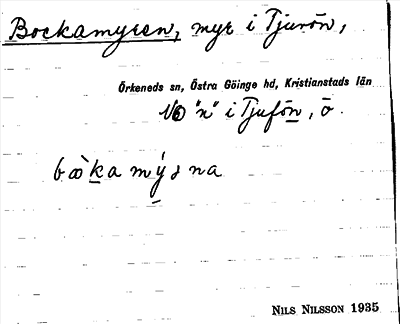 Bockamyren, myr i Tjurön,
Örkeneds sn, Östra Göinge hd, Kristianstads län
"n" i Tjufön, ö.
NILS NILSSON 1935